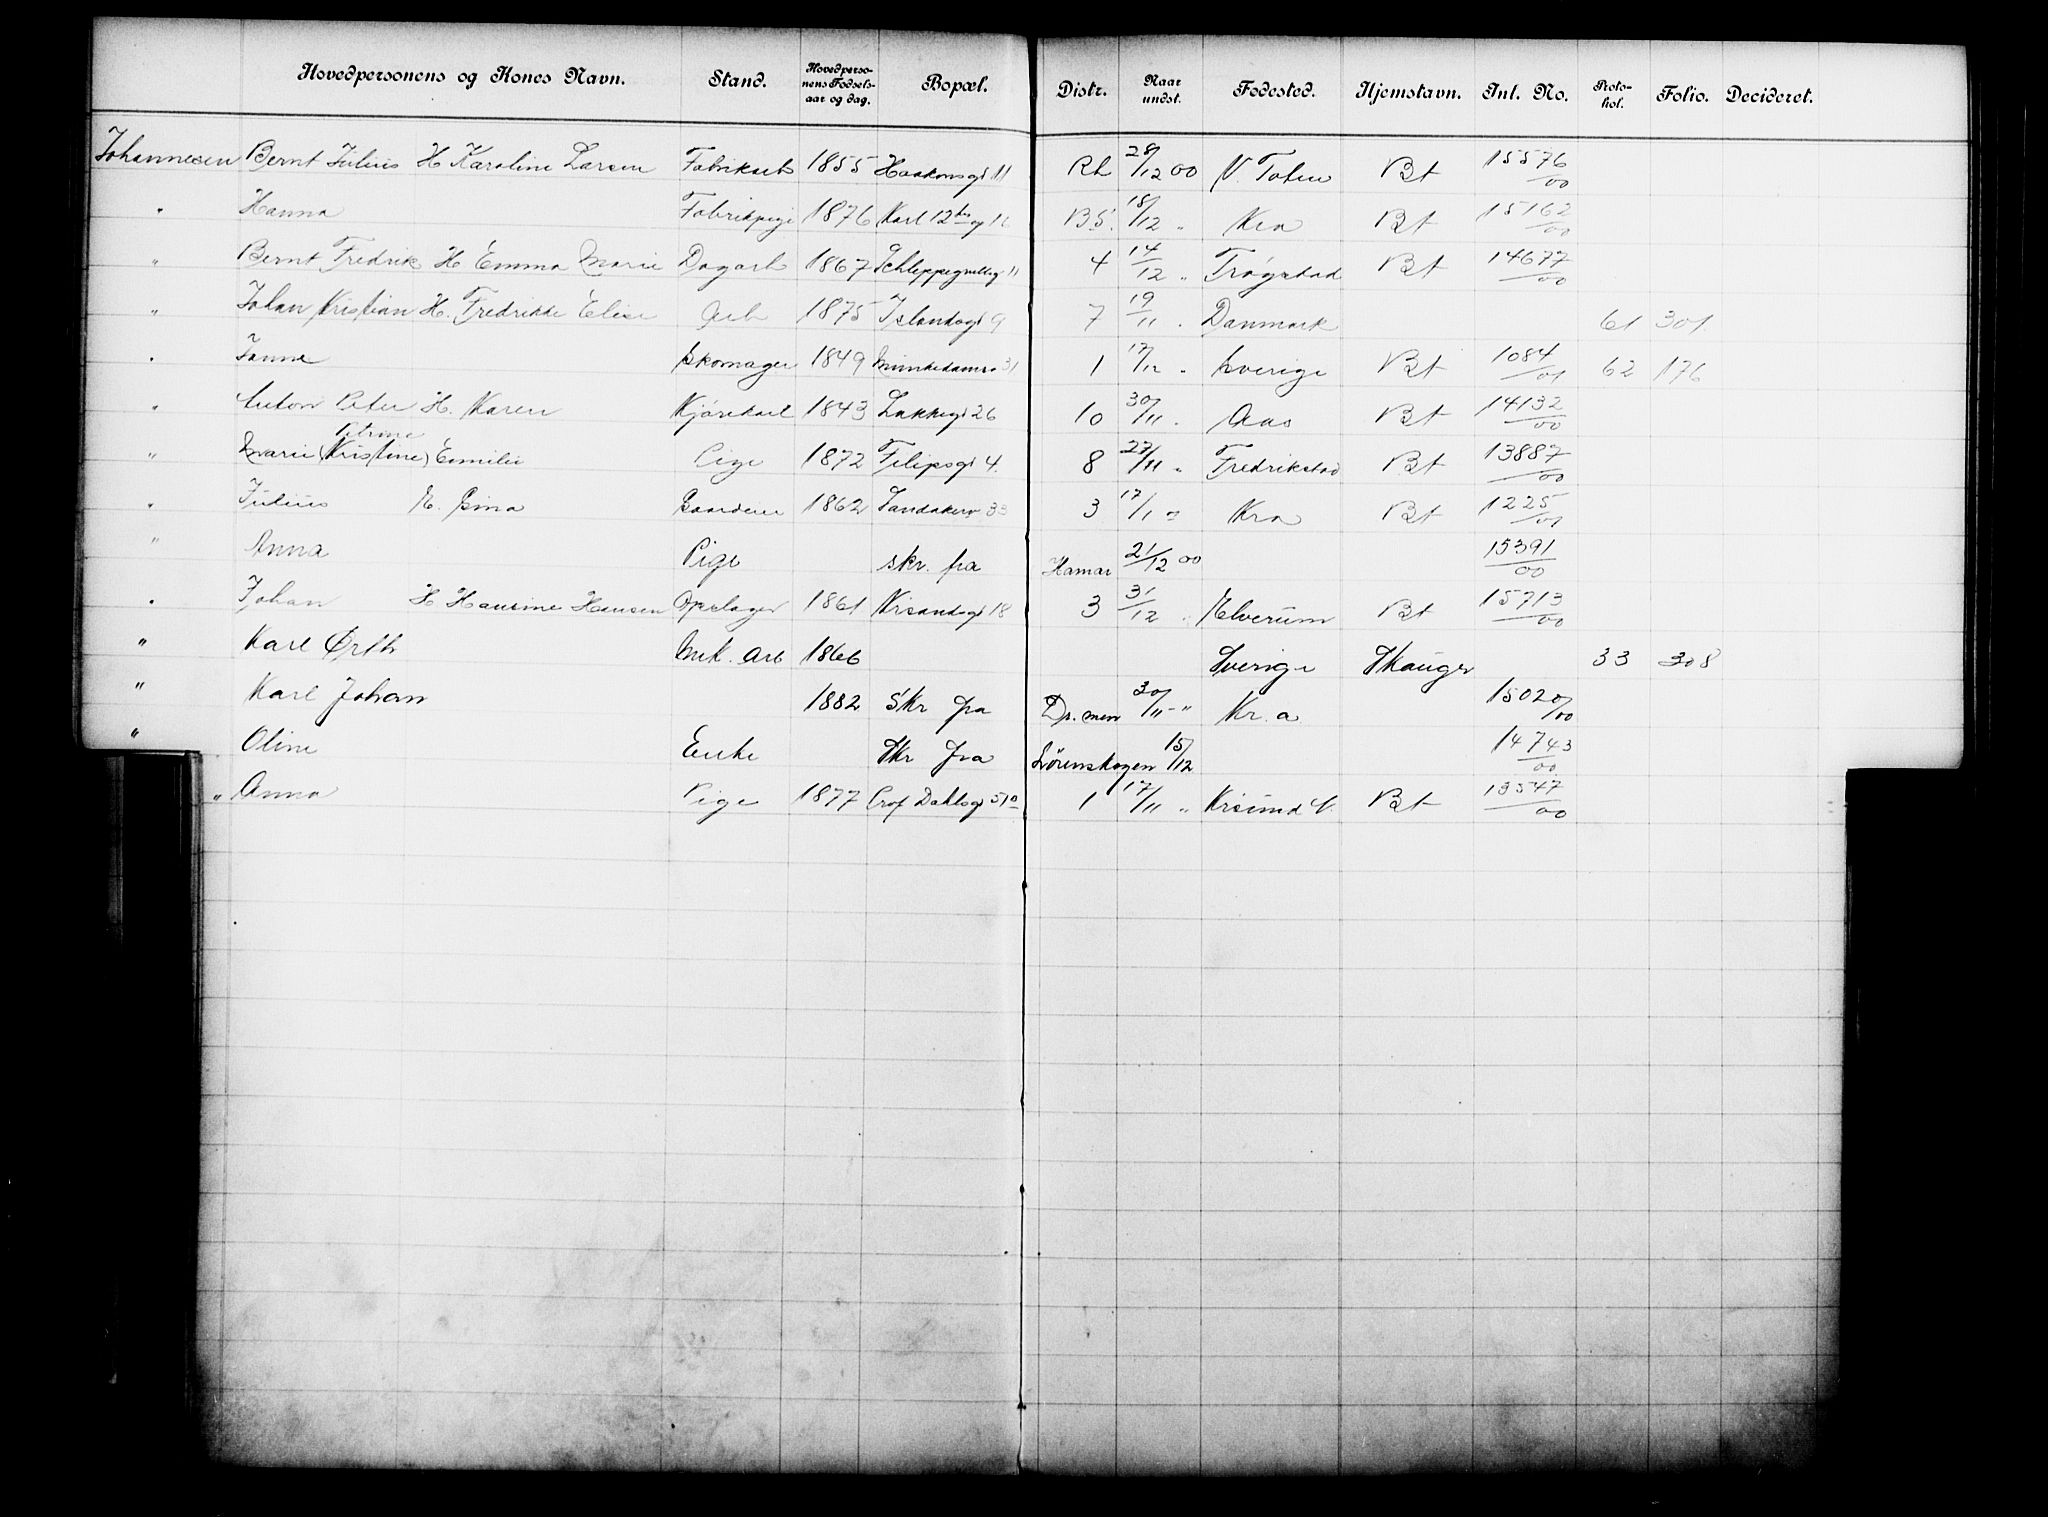 Hovedpersonens og Kones Navn. Stand. Hovedpersonens Fødselsaar og dag. Bopæl. Distr. Naar undst. Fødested. Hjemstavn. Int. No. Protokol. Folio. Decideret.
Johannesen Bernt Julius H Karoline Larsen Fabrikarb 1855 Haakonsgd 11 Rh 28/12 00 V. Toten Bt 15576/00
" Hanna Fabrikpige 1876 Karl 12tes g 16 B5. 18/12 " Kra Bt 15162/00
" Bernt Fredrik H Emma Marie Dagarb 1867 Schleppegrellsg 11 4 14/12 " Trøgstad Bt 14677/00
" Johan Kristian H. Fredrikke Elise Arb 1875 Islandsgd 9 7 19/11 " Danmark 61 301
" Janne Skomager 1849 Munkedamsv 31 1 17/12 " Sverige Bt 1084/01 62 176
" Anton Peter H. Karen Kjørekarl 1843 Lakkegd 26 10 30/11 " Aas Bt 14132/00
Petrine
" Marie (Kristine) Emilie Pige 1872 Filipsgd 4. 8 27/11 " Fredrikstad Bt 13887/00
" Julius H. Sina 1862 Sandakerv 33 3 17/1 Kra Bt 1225/01
" Anna Pige skr. fra Hamar 21/12 00 15391/00
" Johan H Hansine Hansen Opslager 1861 Krsandsgd 18 3 31/12 " Elverum Bt 15713/00
" Karl Ørth Mek. Arb 1866 Sverige Skauger 33 308
" Karl Johan 1882 Skr fra Dr.men 30/11 - " Kr.a 15020/00
" Oline Enke Skr fra Lørenskogen 15/12 14743/00
" Anna Pige 1877 Prof Dahlsgd 51a 1 17/11 " Krsund N. Bt 13547/00